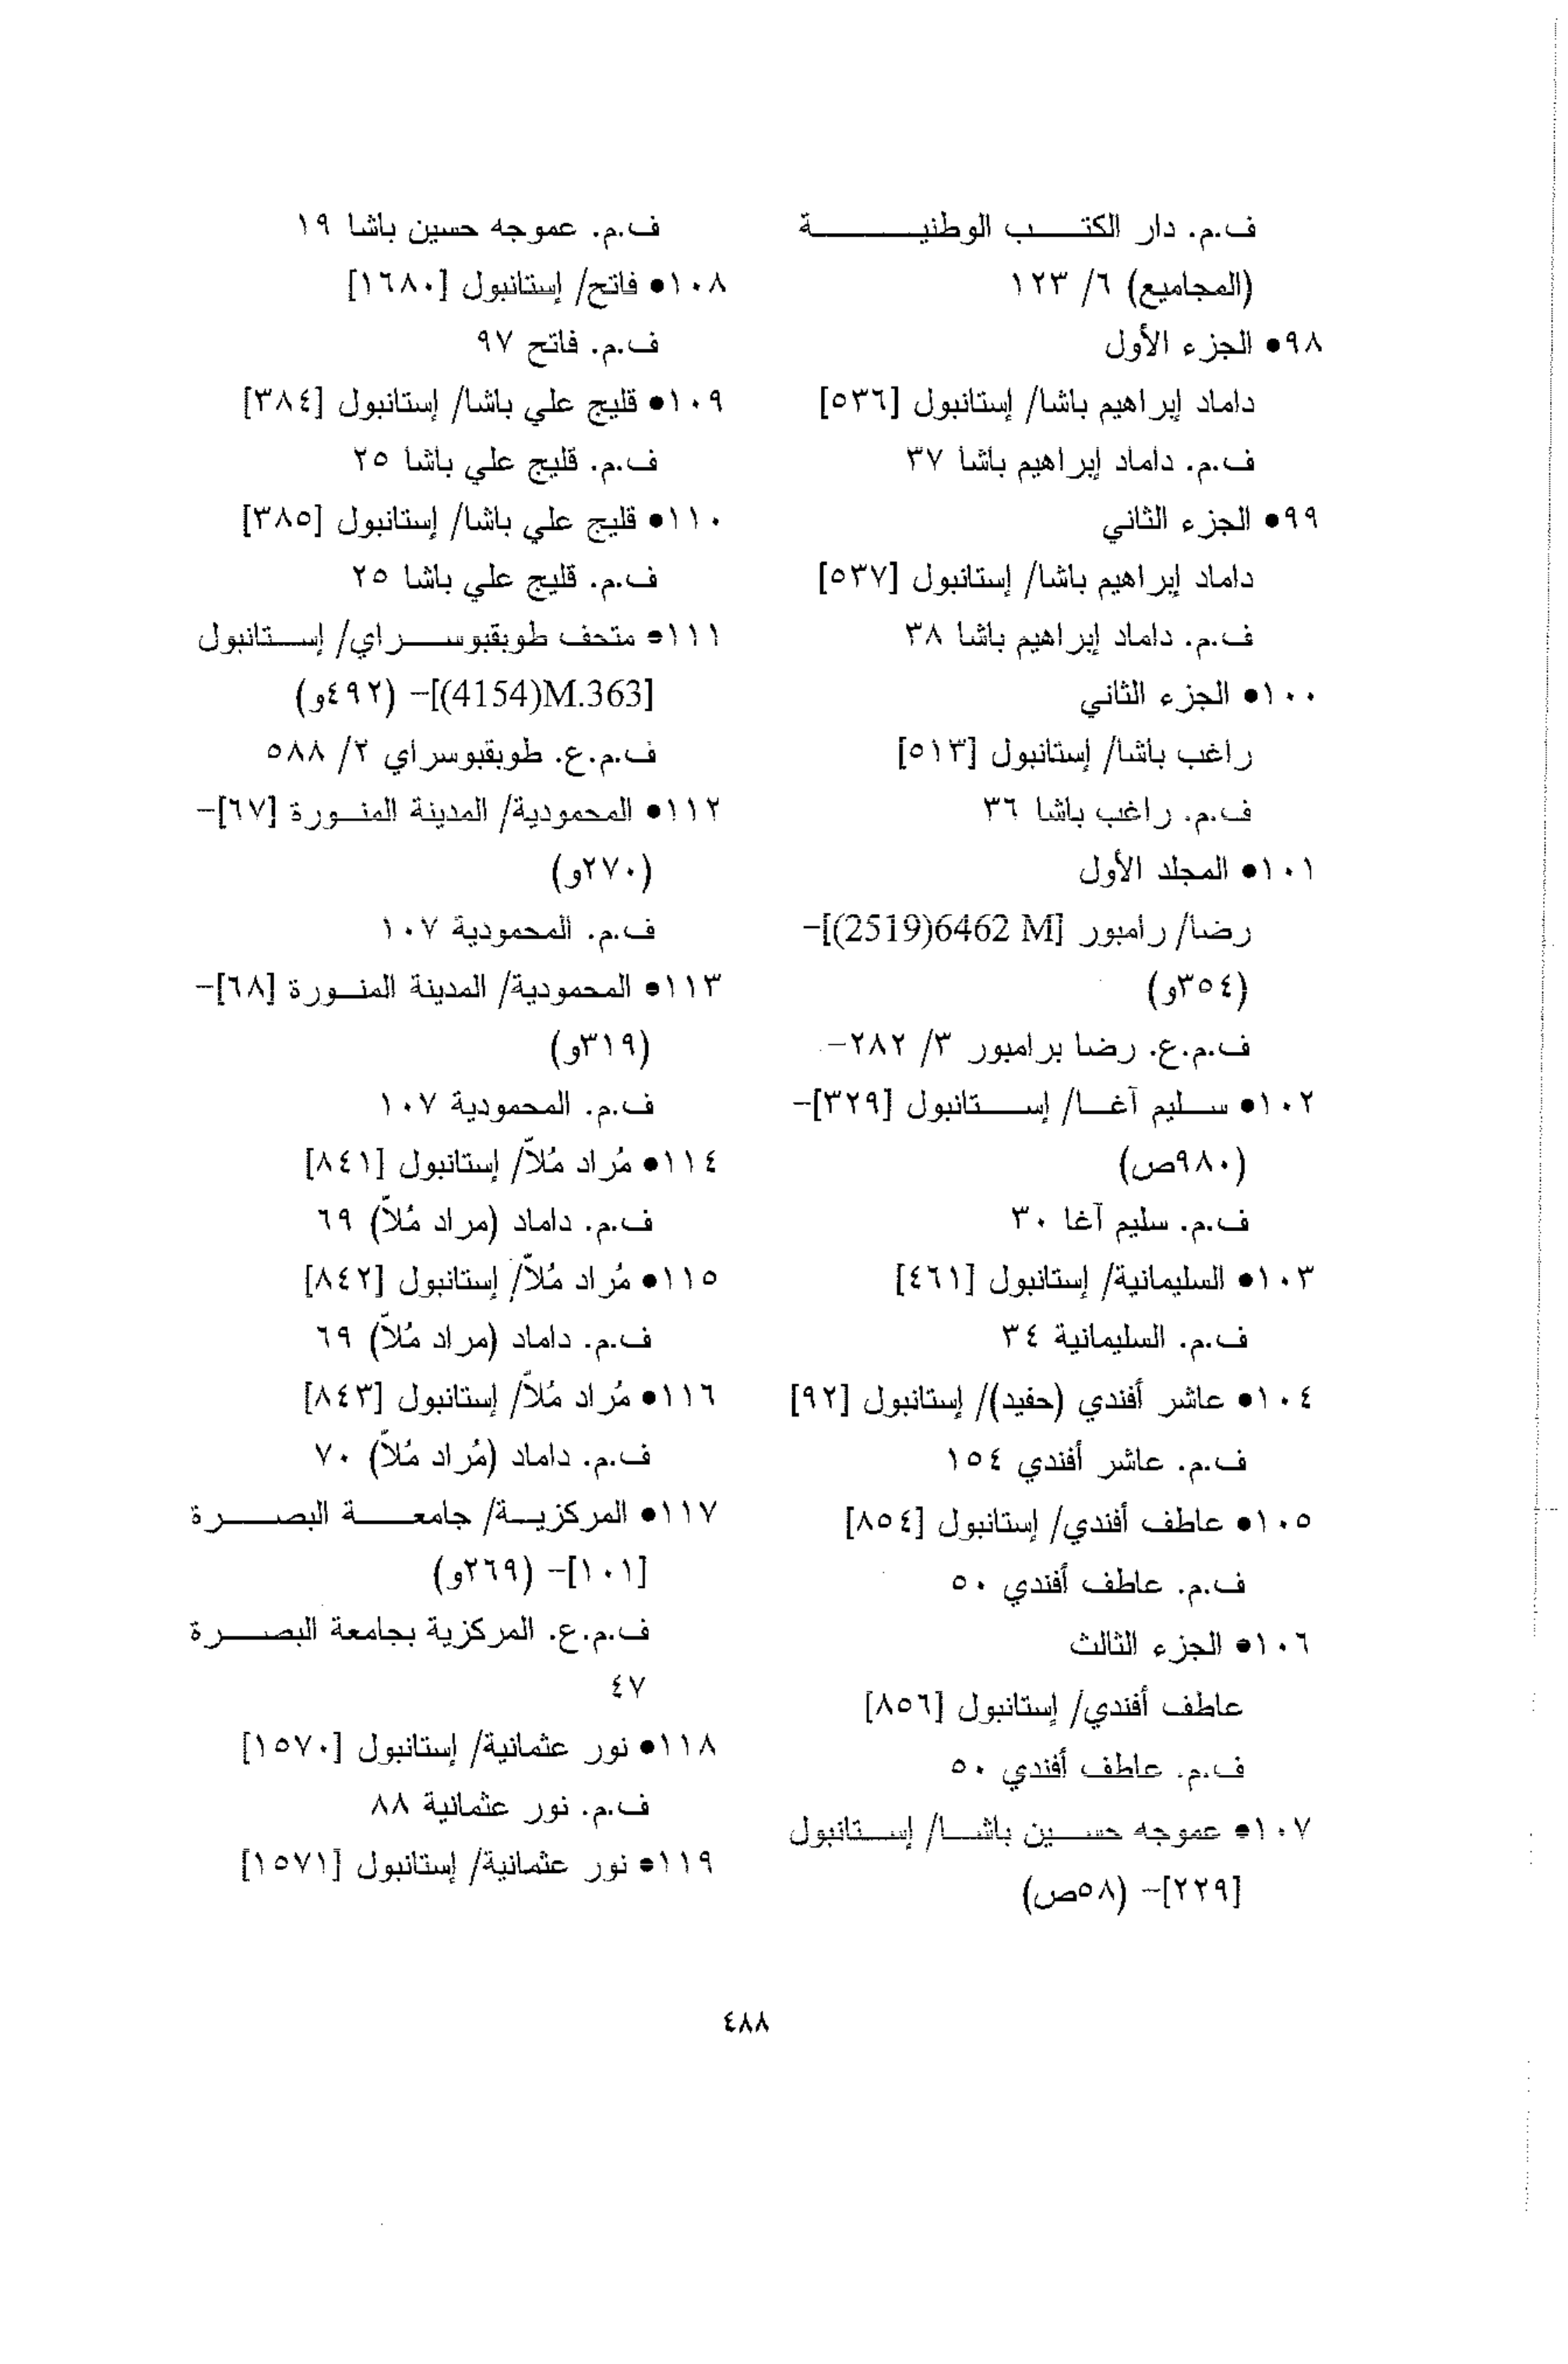 ف.م. دار الكتب الوطنية
(المجاميع) ٦/ ١٢٣
٩٨● الجزء الأول
داماد إبراهيم باشا/ إستانبول [٥٣٦]
ف.م. داماد إبراهيم باشا ٣٧
٩٩● الجزء الثاني
داماد إبراهيم باشا/ إستانبول [٥٣٧]
ف.م. داماد إبراهيم باشا ٣٨
١٠٠● الجزء الثاني
راغب باشا/ إستانبول [٥١٣]
ف.م. راغب باشا ٣٦
١٠١● المجلد الأول
رضا/ رامبور [2519)6462 M)]-
(٣٥٤و)
ف.م.ع. رضا برامبور ٣/ ٢٨٢-
١٠٢● سليم آغا/ إستانبول [٣٢٩]-
(٩٨٠ص)
ف.م. سليم آغا ٣٠
١٠٣● السليمانية/ إستانبول [٤٦١]
ف.م. السليمانية ٣٤
١٠٤● عاشر أفندي (حفيد)/ إستانبول [٩٢]
ف.م. عاشر أفندي ١٥٤
١٠٥● عاطف أفندي/ إستانبول [٨٥٤]
ف.م. عاطف أفندي ٥٠
١٠٦● الجزء الثالث
عاطف أفندي/ إستانبول [٨٥٦]
ف.م. عاطف أفندي ٥٠
١٠٧● عموجه حسين باشا/ إستانبول
[٢٢٩]- (٥٨ص)
ف.م. عموجه حسين باشا ١٩
١٠٨● فاتح/ إستانبول [١٦٨٠]
ف.م. فاتح ٩٧
١٠٩● قليج علي باشا/ إستانبول [٣٨٤]
ف.م. قليج علي باشا ٢٥
١١٠● قليج علي باشا/ إستانبول [٣٨٥]
ف.م. قليج علي باشا ٢٥
١١١● متحف طوبقبوسراي/ إستانبول
[4154)M.363)]- (٤٩٢و)
ف.م.ع. طوبقبوسراي ٢/ ٥٨٨
١١٢● المحمودية/ المدينة المنورة [٦٧]-
(٢٧٠و)
ف.م. المحمودية ١٠٧
١١٣● المحمودية/ المدينة المنورة [٦٨]-
(٣١٩و)
ف.م. المحمودية ١٠٧
١١٤● مُراد مُلاّ/ إستانبول [٨٤١]
ف.م. داماد (مراد مُلاّ) ٦٩
١١٥● مُراد مُلاّ/ إستانبول [٨٤٢]
ف.م. داماد (مراد مُلاّ) ٦٩
١١٦● مُراد مُلاّ/ إستانبول [٨٤٣]
ف.م. داماد (مُراد مُلاّ) ٧٠
١١٧● المركزية/ جامعة البصرة
[١٠١]- (٢٦٩و)
ف.م.ع. المركزية بجامعة البصرة
٤٧
١١٨● نور عثمانية/ إستانبول [١٥٧٠]
ف.م. نور عثمانية ٨٨
١١٩● نور عثمانية/ إستانبول [١٥٧١]
٤٨٨